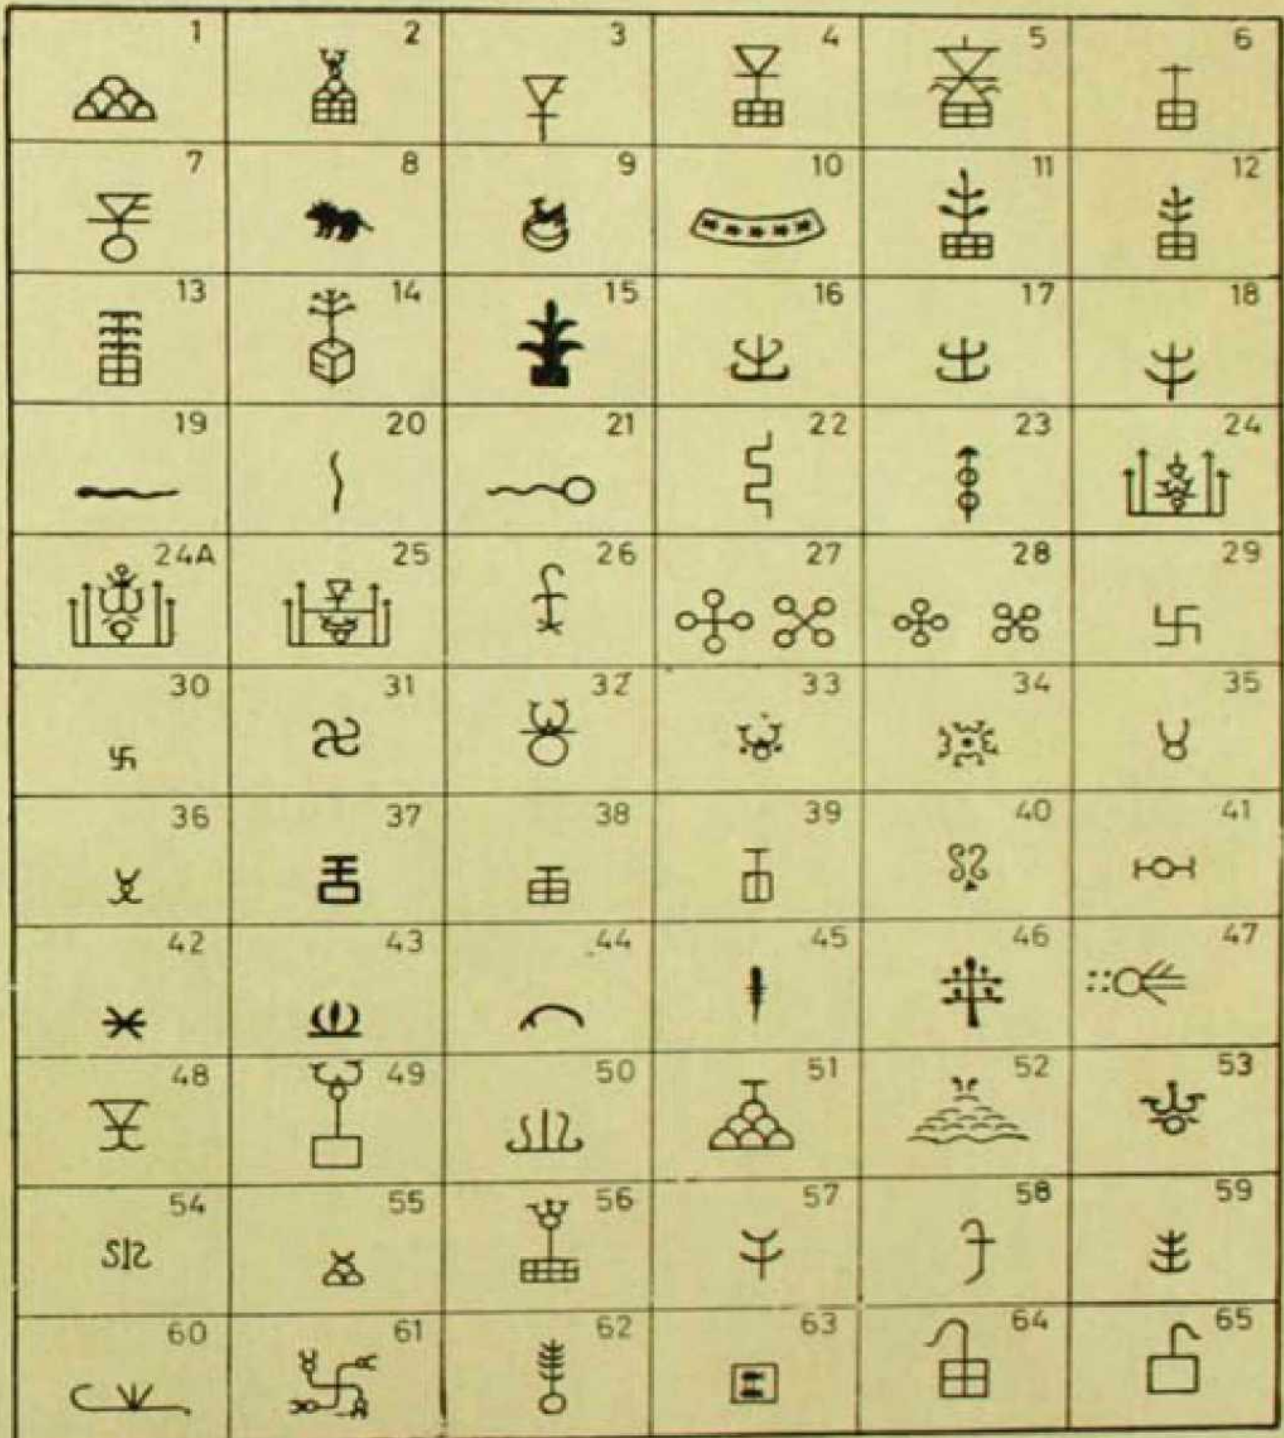 1 2 3 4 5 6
7 8 9 10 11 12
13 14 15 16 17 18
19 20 21 22 23 24
24A 25 26 27 28 29
30 31 32 33 34 35
36 37 38 39 40 41
42 43 44 45 46 47
48 49 50 51 52 53
54 55 56 57 58 59
60 61 62 63 64 65